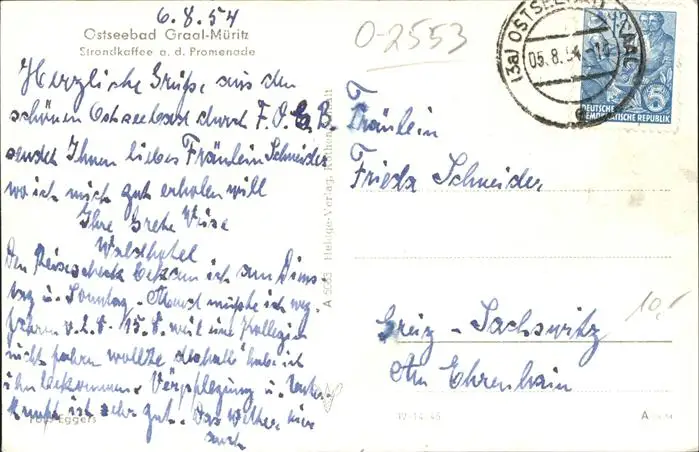 6.8.54
Ostseebad Graal-Müritz
Strandkaffee a. d. Promenade
Herzliche Grüße aus den
schönen Ostseebad durch F.D.G.B.
sendet Ihnen liebes Fräulein Schneider
wo ich mich gut erholen will
Ihre Grete
Waldhotel
Den Reisescheck bekam ich am Diens-
tag u. Sonntag - Monat mußte ich weg-
fahren v. 2.8 - 15.8. weil eine Kollegin
nicht fahren wollte deshalb habe ich
ihn bekommen. Verpflegung u. Unter-
kunft ist sehr gut. Das Wetter hier
auch
Foto Eggers
A 5063 Heldge-Verlag, Köthen
O-2553
(3a) OSTSEEBAD GRAAL
05.8.54
DEUTSCHE
DEMOKRATISCHE REPUBLIK
5
Fräulein
Frieda Schneider
10,-
Greiz - Sachswitz
Am Ehrenhain
IV-14-45
A